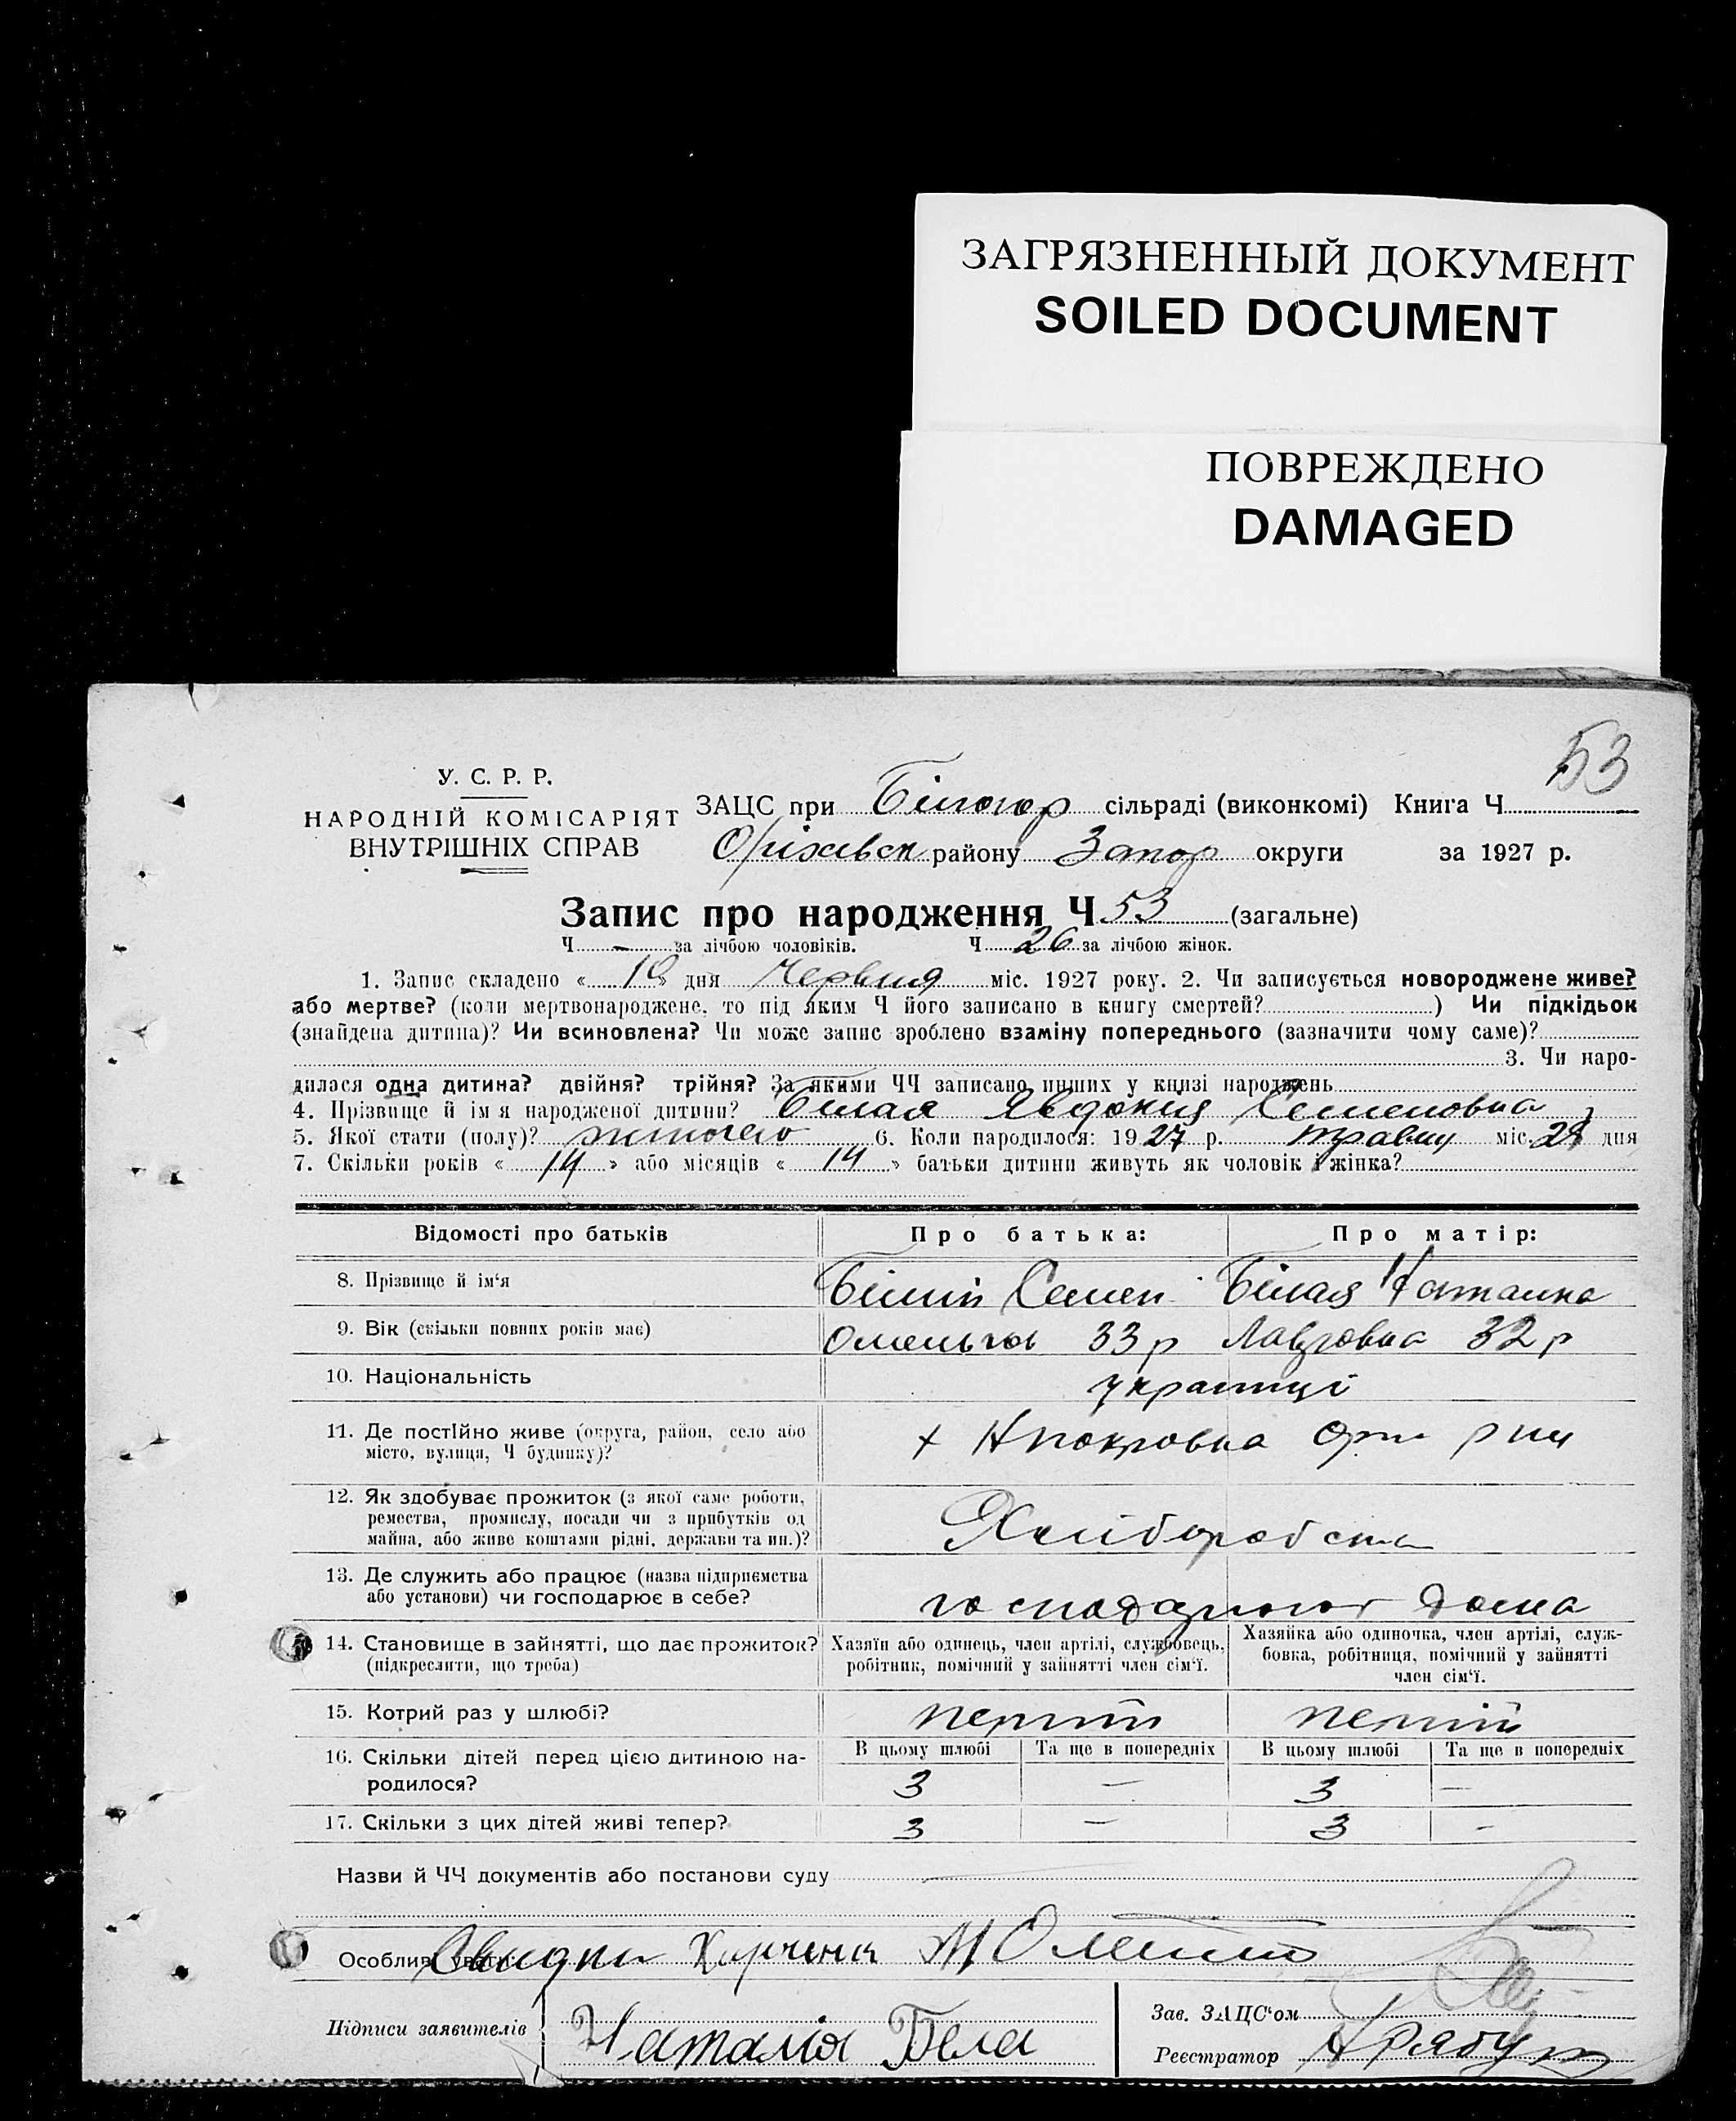 ЗАГРЯЗНЕННЫЙ ДОКУМЕНТ
SOILED DOCUMENT
ПОВРЕЖДЕНО
DAMAGED
53
У. С. Р. Р.
НАРОДНІЙ КОМІСАРІЯТ
ВНУТРІШНІХ СПРАВ
ЗАЦС при Білогор сільраді (виконкомі) Книга Ч
Оріхівск району Запор округи за 1927 р.
Запис про народження Ч 53 (загальне)
Ч — за лічбою чоловіків. Ч 26 за лічбою жінок.
1. Запис складено « » дня Червня міс. 1927 року. 2. Чи записується новороджене живе?
або мертве? (коли мертвонароджене, то під яким Ч його записано в книгу смертей? ) Чи підкідьок
(знайдена дитина)? Чи всиновлена? Чи може запис зроблено взаміну попереднього (зазначити чому саме)?
3. Чи наро-
дилася одна дитина? двійня? трійня? За якими ЧЧ записано инших у книзі народжень
4. Прізвище й ім'я народженої дитини? Білая Явдокия Семеновна
5. Якої стати (полу)? жіночого 6. Коли народилося: 1927 р. травня міс. дня
7. Скільки років « 14 » або місяців « 14 » батьки дитини живуть як чоловік і жінка?
Відомості про батьків Про батька: Про матір:
8. Прізвище й ім'я Білий Семен Білая Наталка
9. Вік (скільки повних років має) 33 р Лавровна 32 р
10. Національність українці
11. Де постійно живе (округа, район, село або
місто, вулиця, Ч будинку)? х Нпокровка Оріх рну
12. Як здобуває прожиток (з якої саме роботи,
ремества, промислу, посади чи з прибутків од
майна, або живе коштами рідні, держави та ин.)? Хліборобства
13. Де служить або працює (назва підприємства
або установи) чи господарює в себе? господарюют дома
14. Становище в зайнятті, що дає прожиток? Хазяїн або одинець, член артілі, службовець, Хазяйка або одиночка, член артілі, служ-
(підкреслити, що треба) робітник, помічний у зайнятті член сім'ї. бовка, робітниця, помічний у зайнятті
член сім'ї.
15. Котрий раз у шлюбі? перший перший
16. Скільки дітей перед цією дитиною на-
родилося? В цьому шлюбі Та ще в попередніх В цьому шлюбі Та ще в попередніх
3 — 3 —
17. Скільки з цих дітей живі тепер? 3 — 3 -
Назви й ЧЧ документів або постанови суду
Особливі уваги Свидки Харченк
Підписи заявителів Наталія Бела
Зав. ЗАЦС'ом
Реєстратор